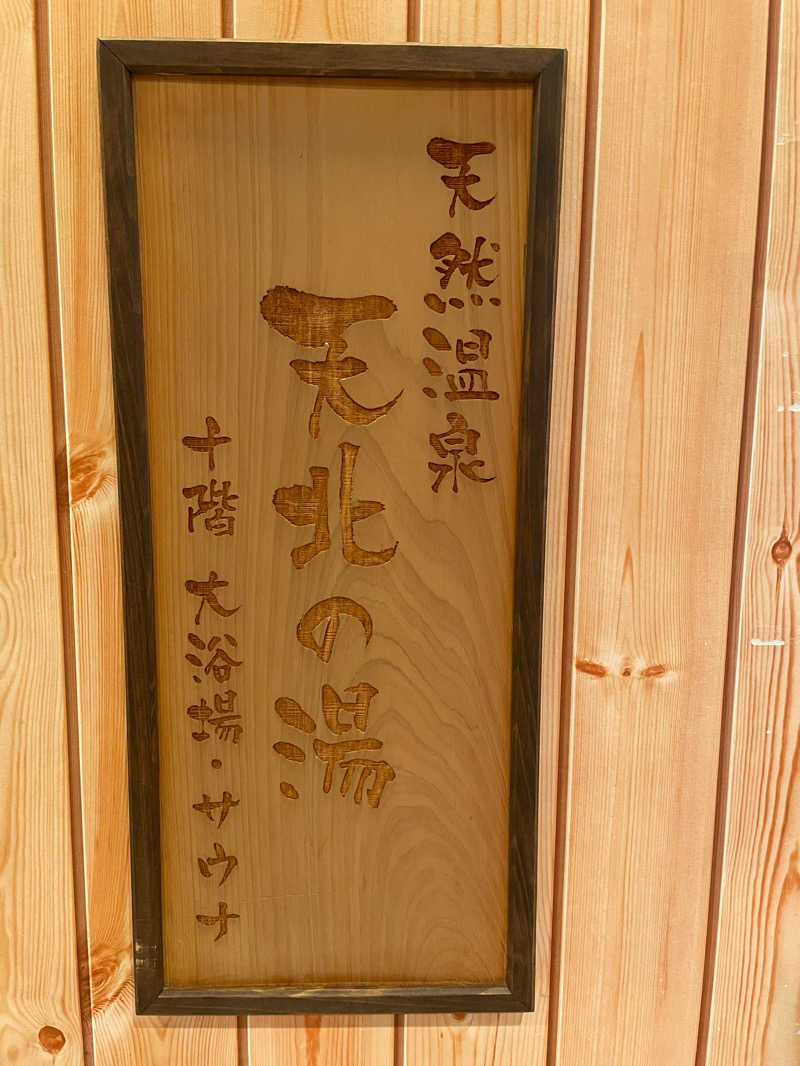 天然温泉
天北の湯
十階 大浴場・サウナ